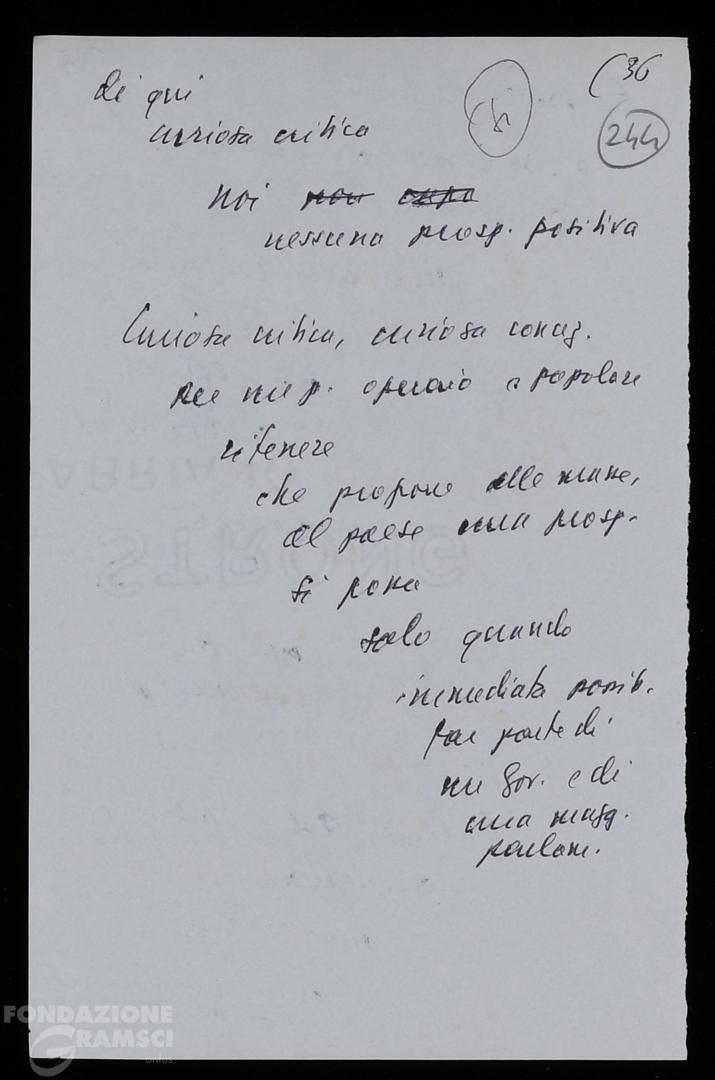 (36
244
di qui
curiosa critica
noi non
nessuna prosp. positiva
Curiosa critica, curiosa concez.
per un p. operaio e popolare
ritenere
che proporre alle masse,
al paese una prosp.
si possa
solo quando
immediata possib.
far parte di
un gov. e di
una magg.
parlam.
STRONG
FONDAZIONE
GRAMSCI
onlus